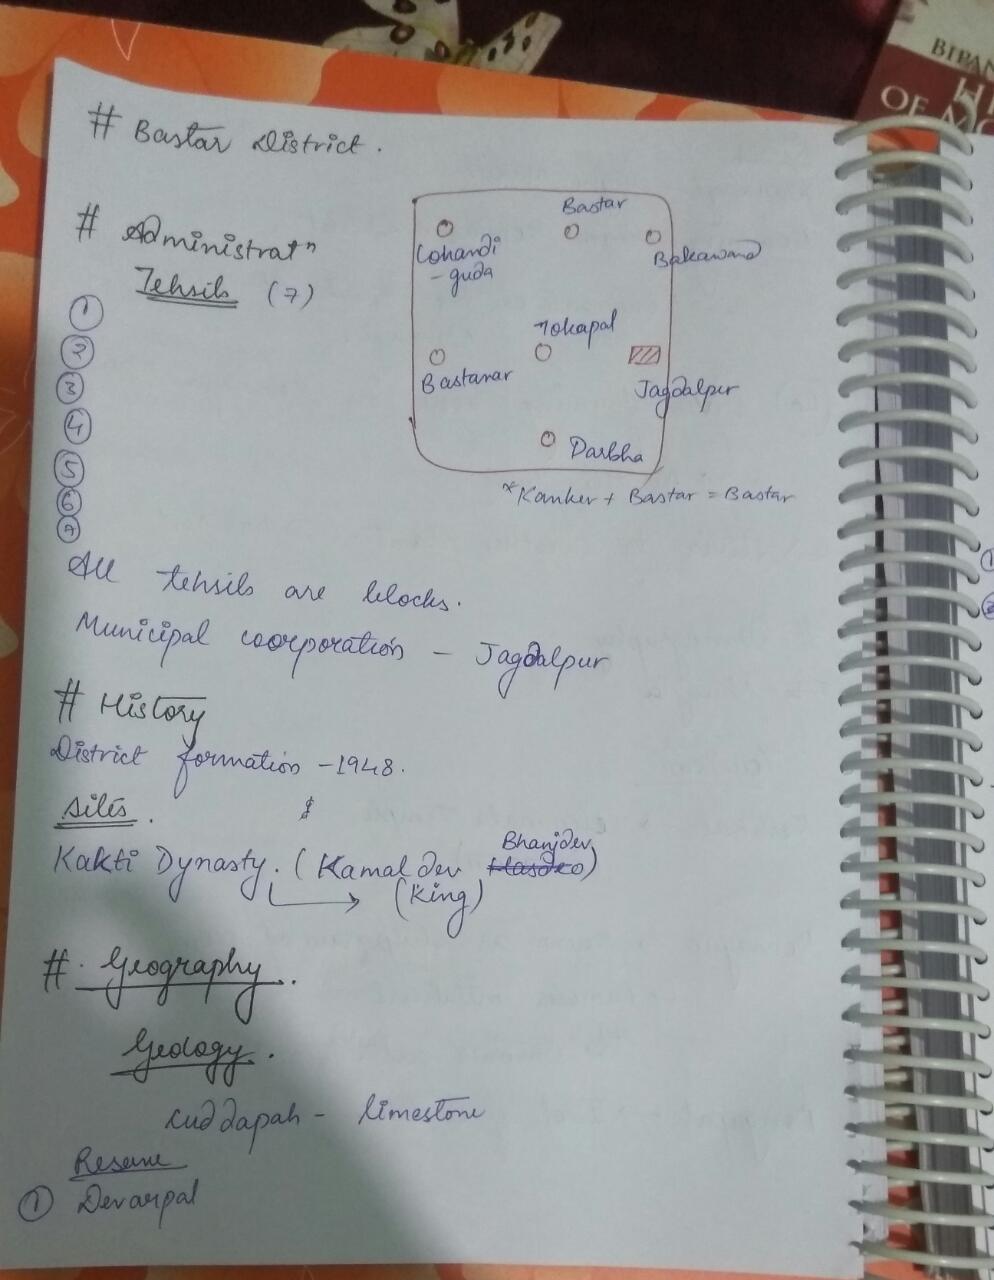 BIPAN
HI
OF MO
# Bastar District.
# Administratn
Tehsils (7)
1
2
3
4
5
6
7
Bastar
Lohandi
-guda
Bakawand
Tokapal
Bastanar
Jagdalpur
Darbha
*Kanker + Bastar = Bastar
All tehsils are blocks.
Municipal coorporation - Jagdalpur
# History
District formation - 1948.
Sites.
Bhanjdev
Kakti Dynasty. (Kamal dev Hasdeo)
(King)
# Geography.
Geology.
cuddapah - limestone
Reserve
1 Devarpal